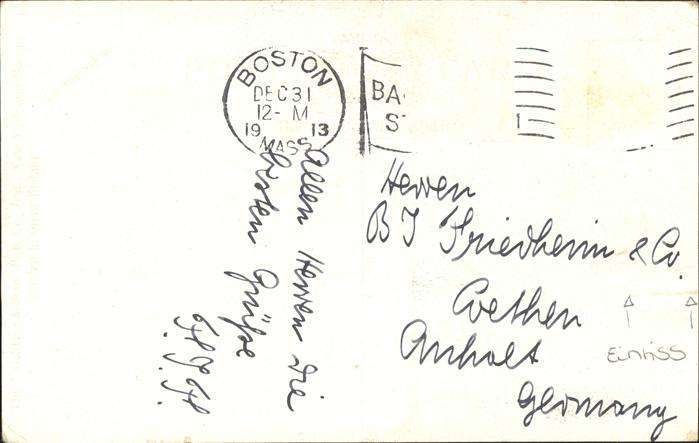 BOSTON
DEC 31
12- M
19 13
MASS
BA
S
Allen Herren die
besten Grüße
Herren
B J Friedheim & Co.
Coethen
Anhalt
Germany
Einriss